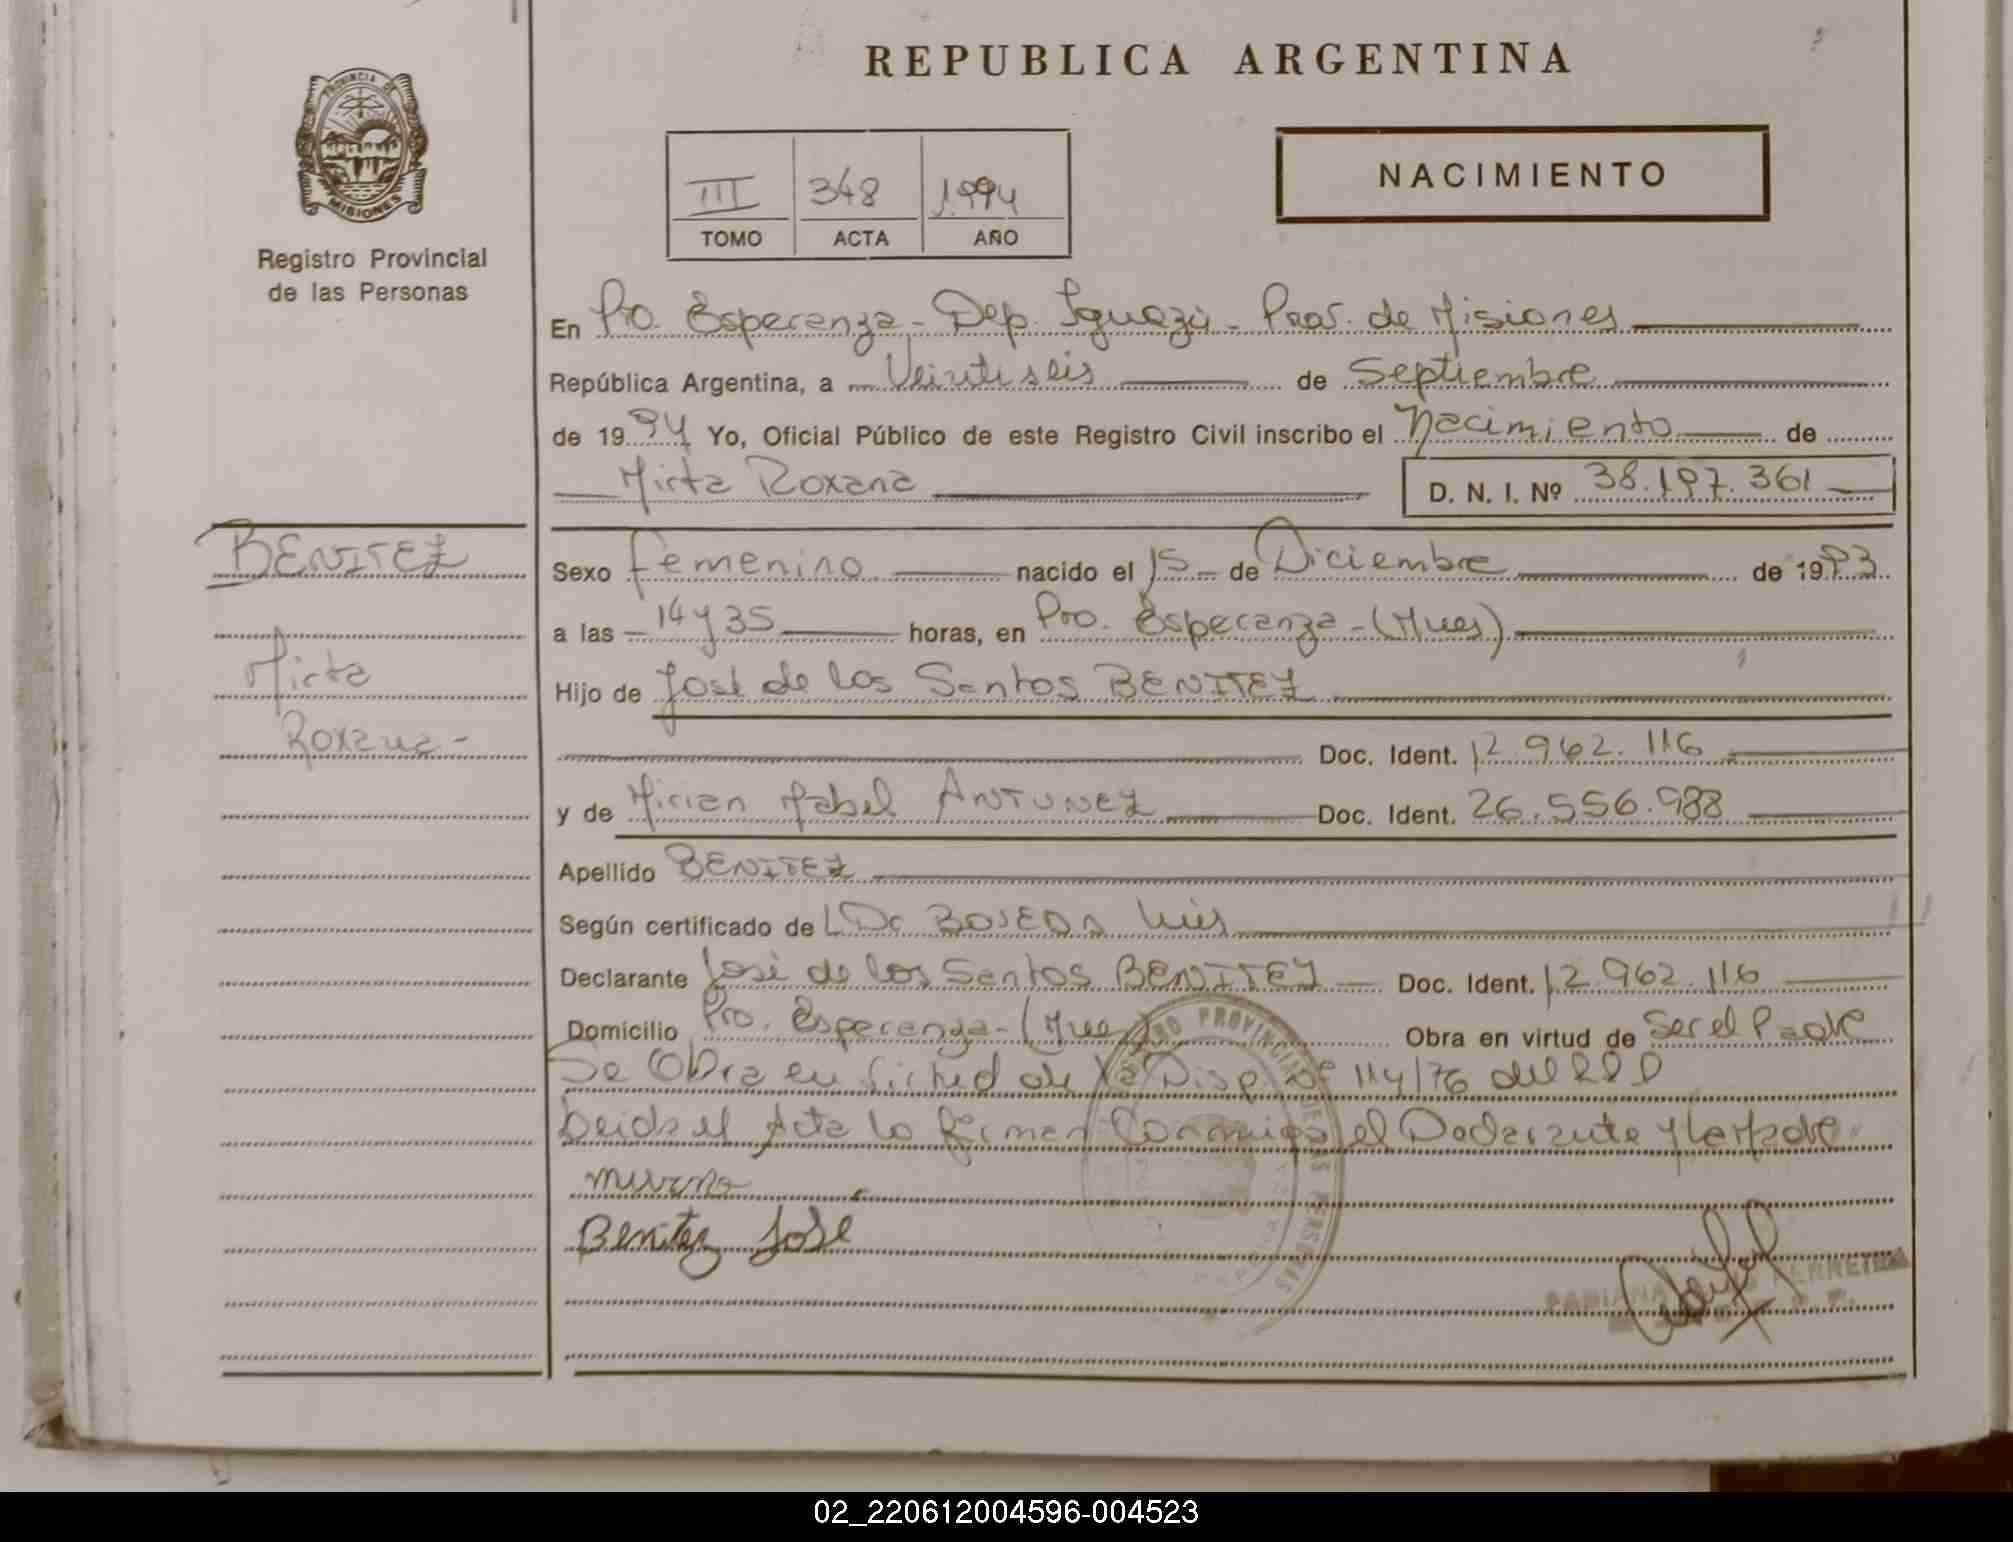 REPUBLICA ARGENTINA
PROVINCIA DE
MISIONES
Registro Provincial
de las Personas
III 348 1994
TOMO ACTA AÑO
NACIMIENTO
En Pto. Esperanza - Dep. Iguazú - Prov. de Misiones
República Argentina, a Veintiseis de Septiembre
de 1994 Yo, Oficial Público de este Registro Civil inscribo el Nacimiento de
Mirta Roxana D. N. I. Nº 38.197.361
BENITEZ
Mirta
Roxana -
Sexo femenino nacido el 15 de Diciembre de 1993
a las 14 y 35 horas, en Pto. Esperanza - (Mnes)
Hijo de José de los Santos BENITEZ
Doc. Ident. 12.962.116
y de Mirian Mabel ANTUNEZ Doc. Ident. 26.556.988
Apellido BENITEZ
Según certificado de Luis
Declarante José de los Santos BENITEZ Doc. Ident. 12.962.116
Domicilio Pto. Esperanza - (Mnes) Obra en virtud de Ser el Padre
Se Obra en Virtud de la Disp. Nº 114/76 del RPP
Leida el Acta la firman Conmigo el Declarante y la Madre
Benitez José
PROVINCIAL DE LAS PERSONAS
02_220612004596-004523